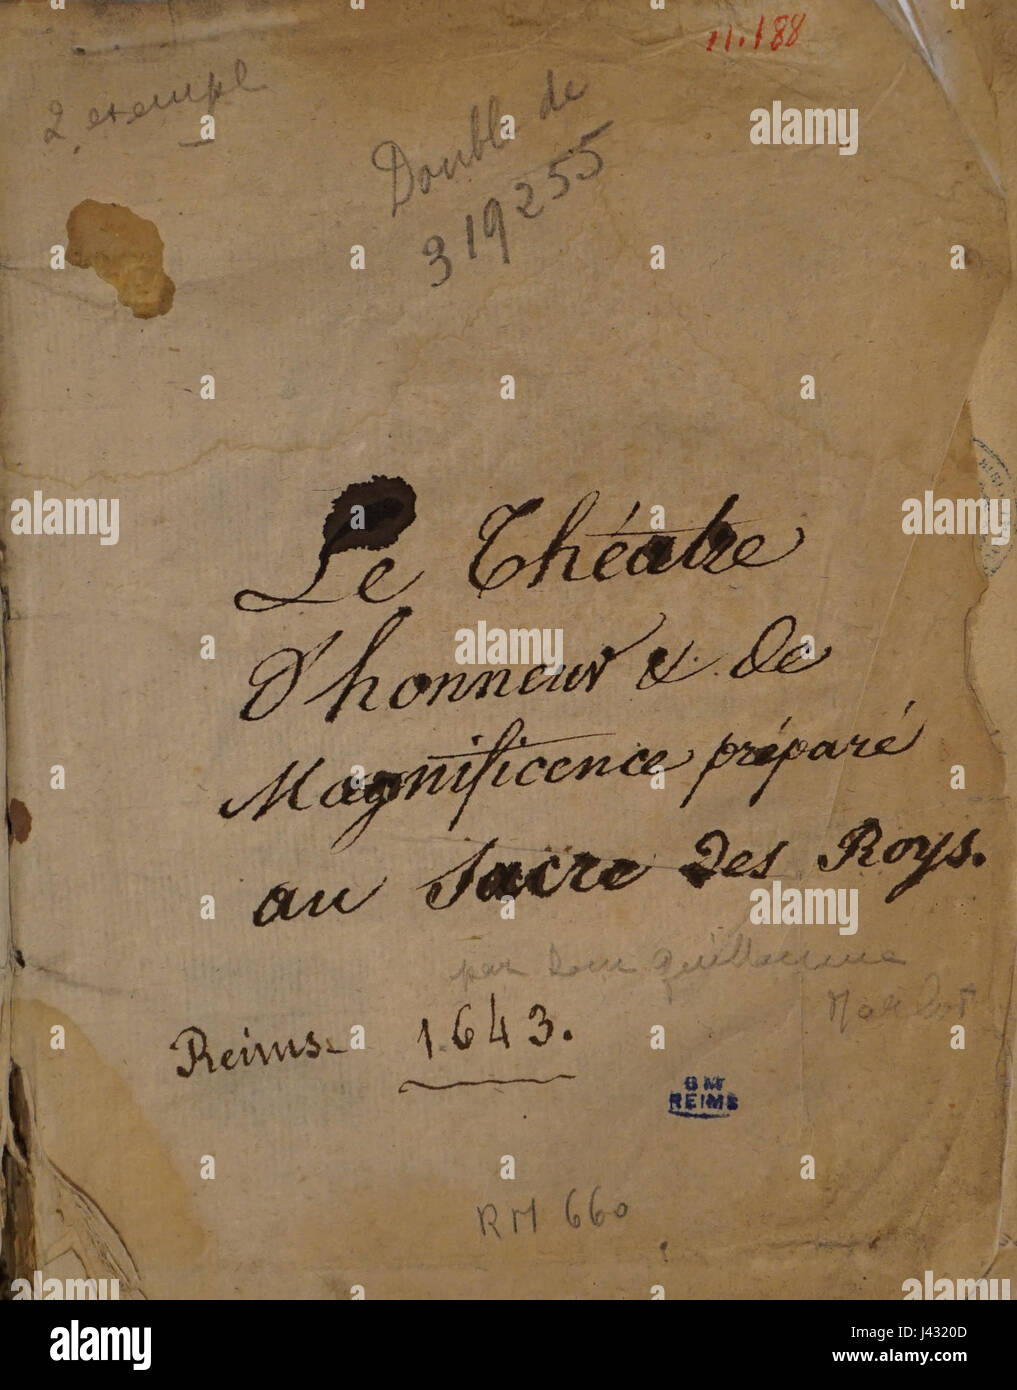 11.188
2 exempl
Double de
319255
Le Théatre
d'honneur & de
Magnificence préparé
au Sacre des Roys.
par Dom Guillaume
Marlot
Reims. 1643.
BM
REIMS
RM 660
alamy
Image ID: J4320D
www.alamy.com